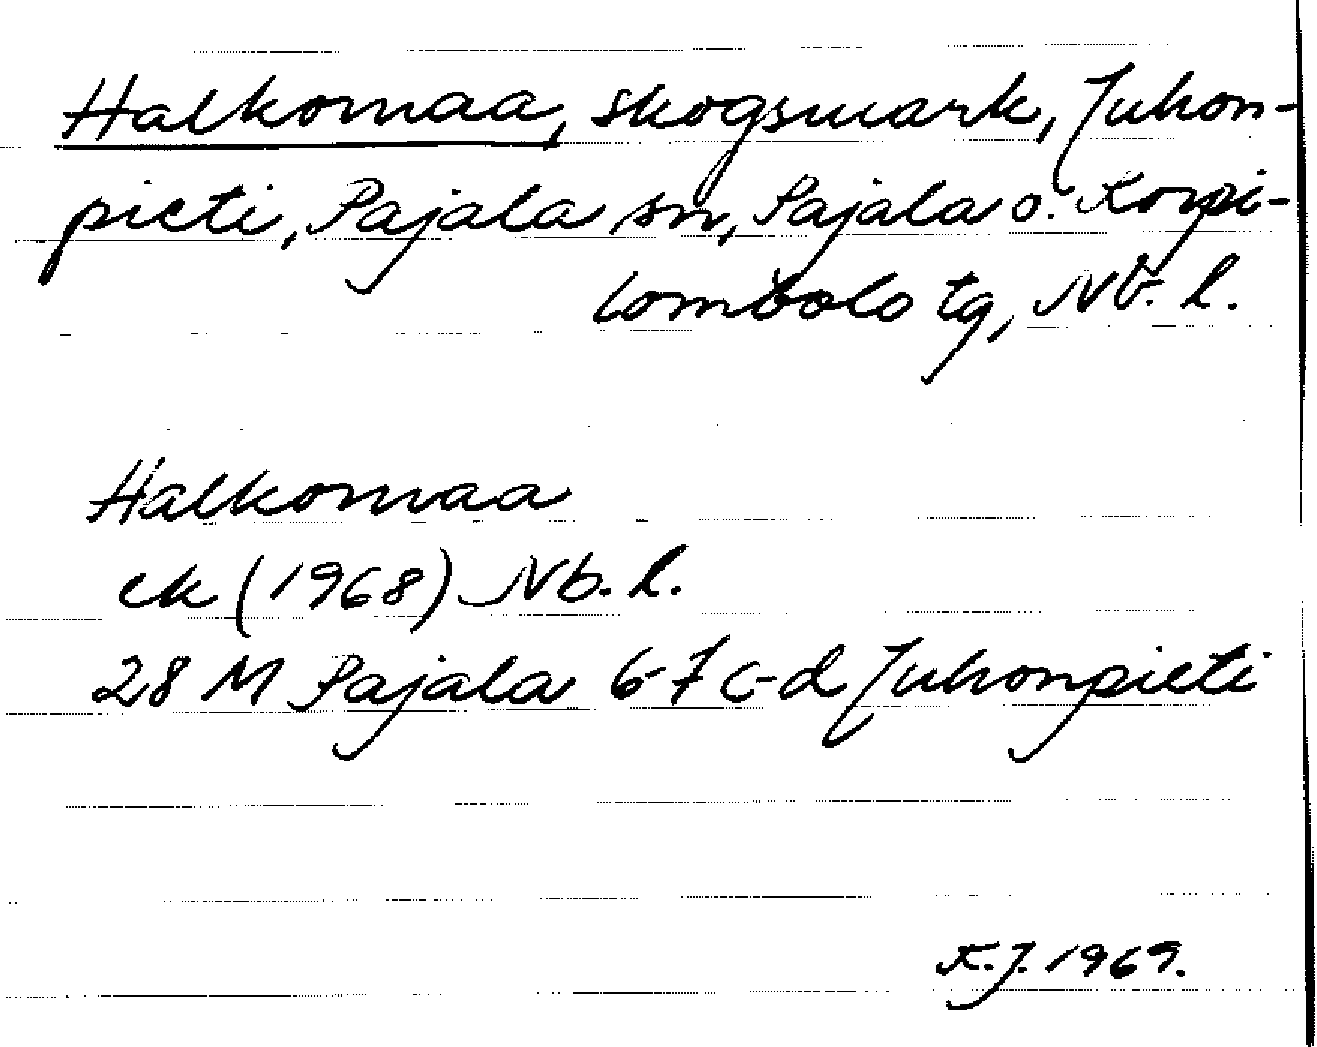 Halkomaa, skogsmark, Juhon-
pieti, Pajala sn, Pajala o. Korpi-
lombolo tg, Nb. l.
Halkomaa
ek (1968) Nb. l.
28 M Pajala 6-7 c-d Juhonpieti
K.J. 1969.